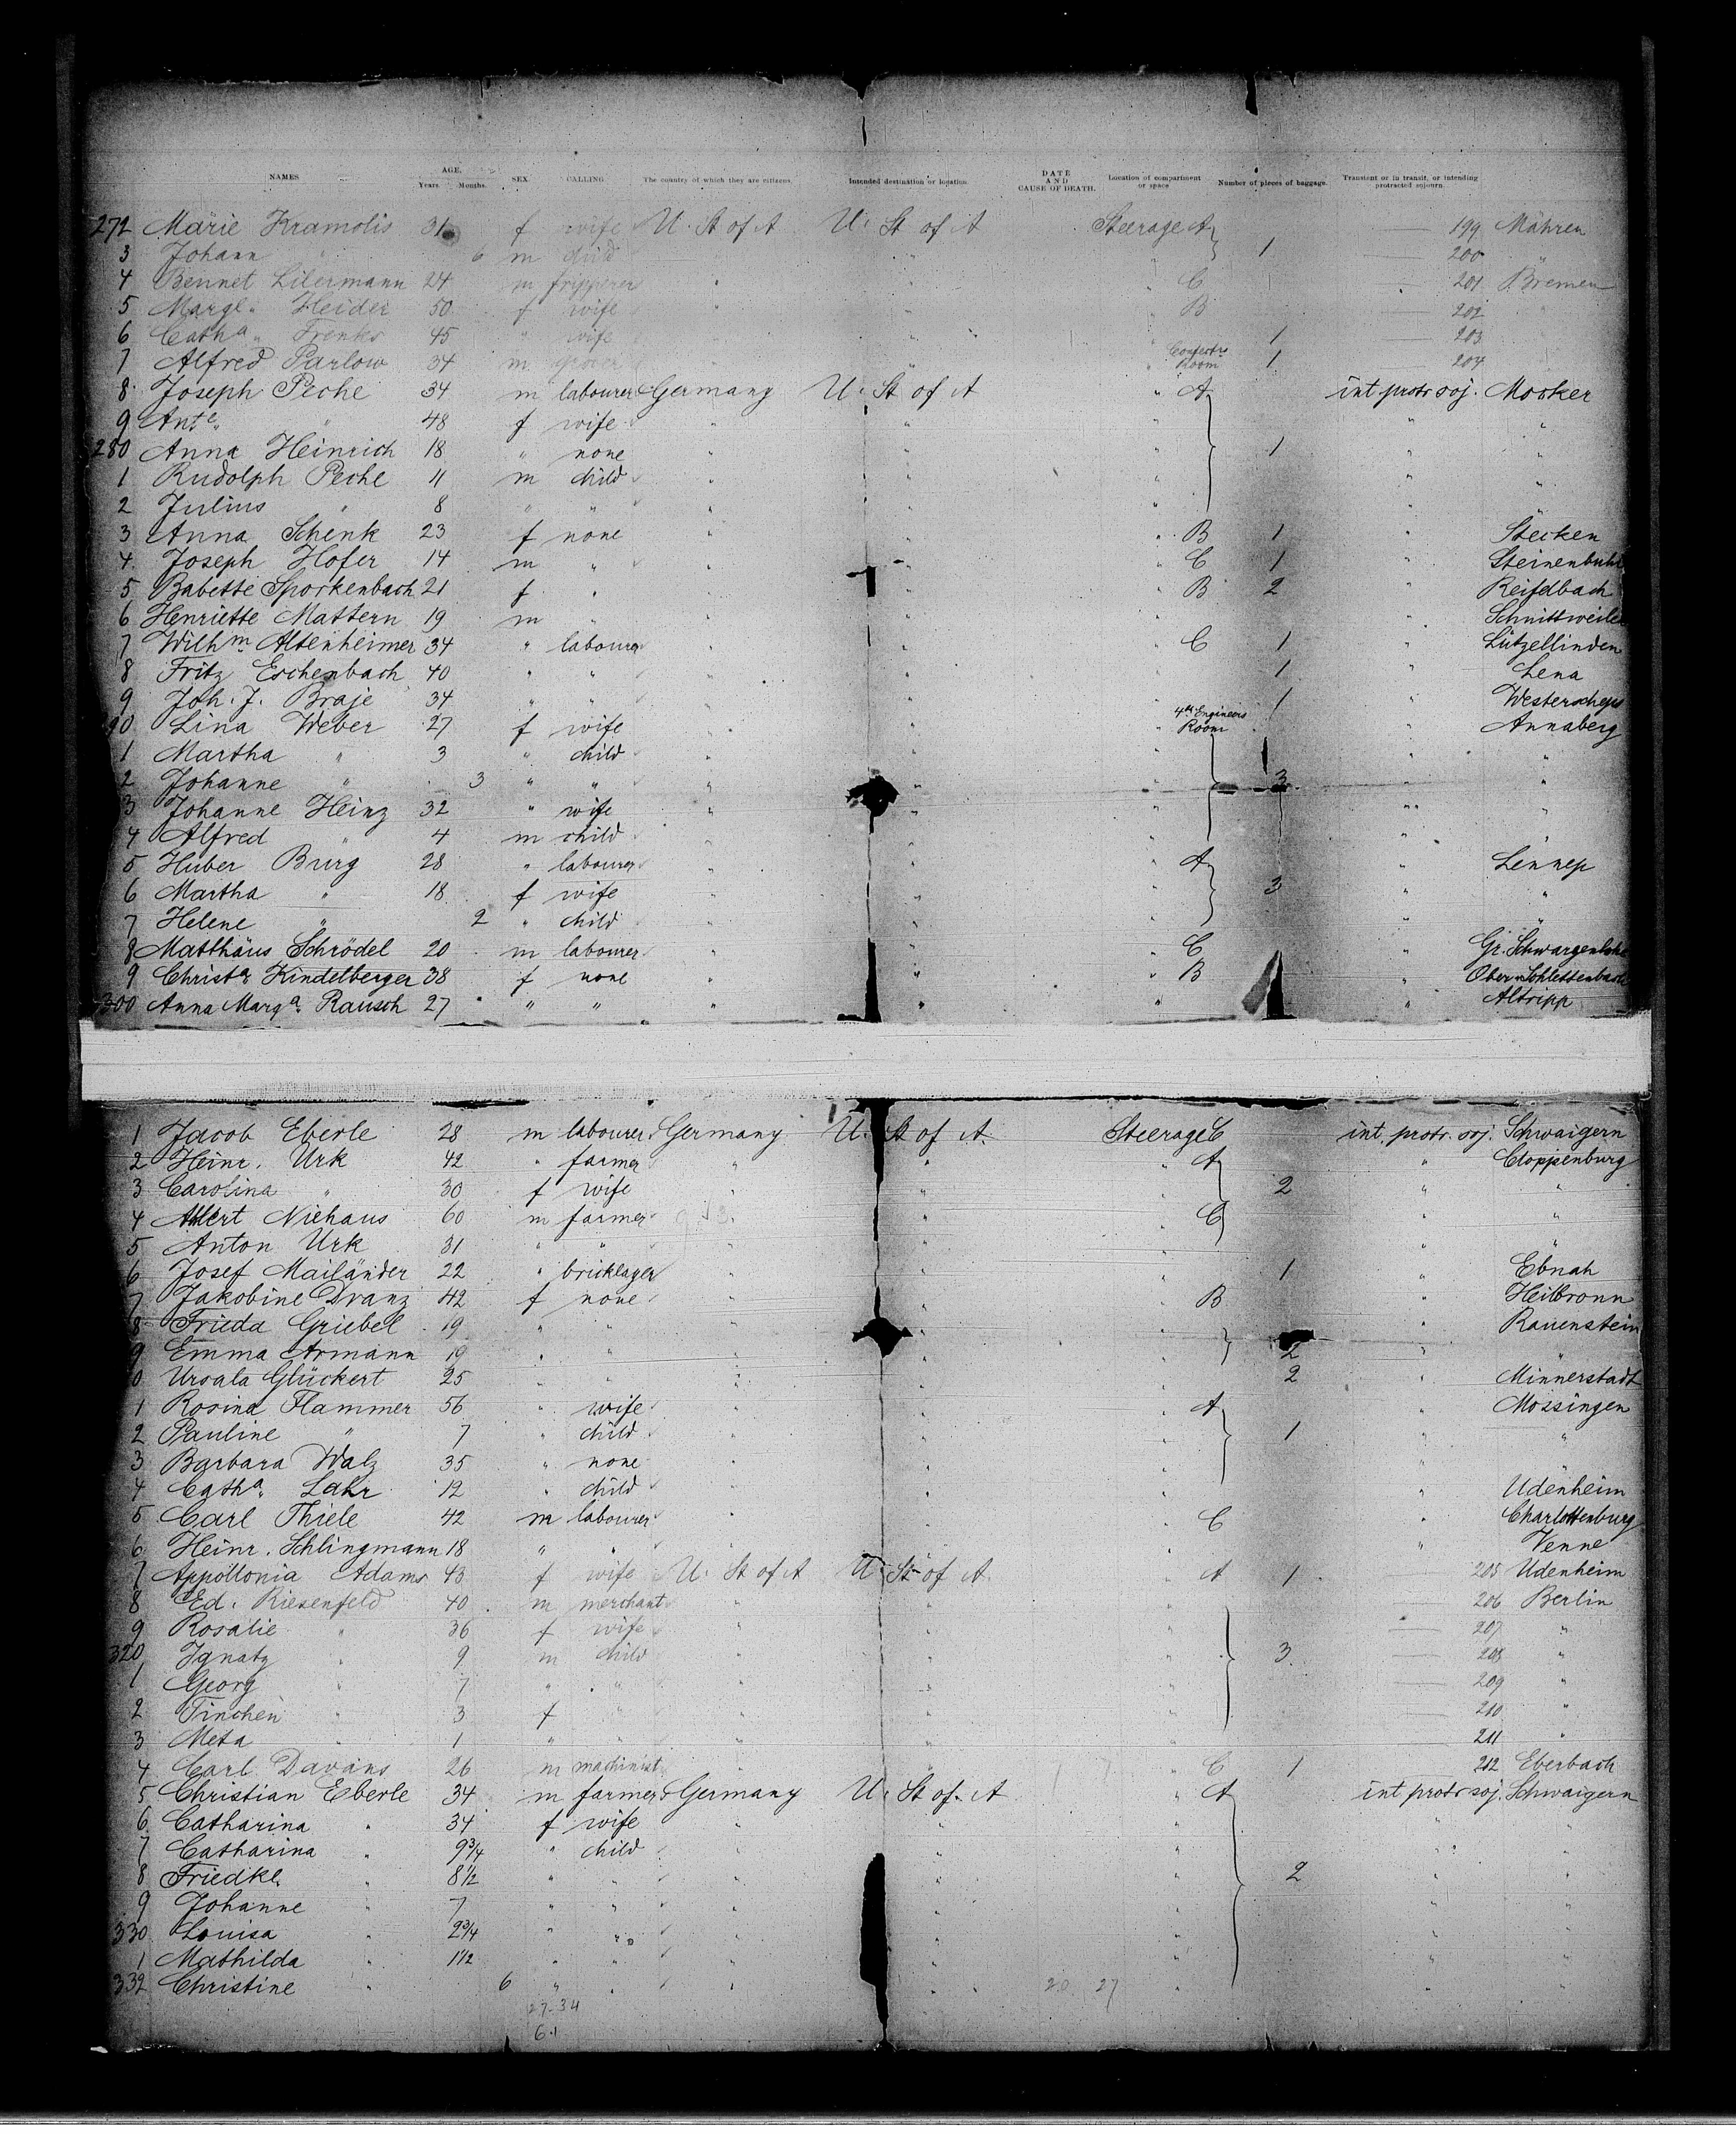 NAMES AGE. Years. Months. SEX. CALLING The country of which they are citizens. Intended destination or location. DATE AND CAUSE OF DEATH. Location of compartment or space Number of pieces of baggage. Transient or in transit, or intending protracted sojourn
272 Marie Kramolis 31 f wife U. St of A U. St of A Steerage A 199 Mähren
3 Johann " 6 m child " " " 1 200 "
4 Bennet Lilermann 24 m " " " C 201 Bremen
5 Margt. Heider 50 f wife " " " B 202 "
6 Catha. Frenks 45 " wife " " " 1 203
7 Alfred Parlow 34 m " " " Room 1 204
8 Joseph Peche 34 m labourer Germany U. St of A " A int. protr soj. Mosker
9 Ante. " 48 f wife " " " " "
280 Anna Heinrich 18 " none " " " 1 " "
1 Rudolph Peche 11 m child " " " " "
2 Julius " 8 " " " " " " "
3 Anna Schenk 23 f none " " " B 1 " Stecken
4 Joseph Hofer 14 m " " " " C 1 " Steinenbuhl
5 Babette Sporkenbach 21 f " " " " B 2 " Reifelbach
6 Henriette Mattern 19 m " " " " " Schnittweiler
7 Wilhm. Altenheimer 34 " labourer " " " C 1 " Lützellinden
8 Fritz Eschenbach 40 " " " " " 1 " Lena
9 Joh. J. Braje 34 " " " " " 1 " Westerscheps
90 Lina Weber 27 f wife " " " 4th Engineers Room " Annaberg
1 Martha " 3 " child " " " " "
2 Johanne " 3 " " " " " 3 " "
3 Johanne Heinz 32 " wife " " " " "
4 Alfred " 4 m child " " " " "
5 Huber Burg 28 " labourer " " " A " Lennep
6 Martha " 18 f wife " " " 3 " "
7 Helene " 2 " child " " " " "
8 Matthäus Schrödel 20 m labourer " " " C " Gr. Schwargenlohe
9 Christa. Kindelberger 38 f none " " " B " Ober-Schlettenbach
300 Anna Marga. Rausch 27 " " " " " " Altripp
1 Jacob Eberle 28 m labourer Germany U. St of A. Steerage C int. protr. soj. Schwaigern
2 Heinr. Urk 42 " farmer " " " A " Cloppenburg
3 Carolina " 30 f wife " " " 2 " "
4 Ahlert Niehaus 60 m farmer " " C " "
5 Anton Urk 31 " " " " " " "
6 Josef Mailänder 22 " bricklager " " " 1 " Ebnah
7 Jakobine Dranz 42 f none " " " B " Heilbronn
8 Frieda Griebel 19 " " " " " " Rauenstein
9 Emma Armann 19 " " " " " 2 " "
0 Ursala Glückert 25 " " " " " 2 " Minnerstadt
1 Rosina Flammer 56 " wife " " " A " Mossingen
2 Pauline " 7 " child " " " 1 " "
3 Barbara Walz 35 " none " " " " "
4 Catha. Lahr 12 " child " " " " Udenheim
5 Carl Thiele 42 m labourer " " " C " Charlottenburg
6 Heinr. Schlingmann 18 " " " " " " Venne
7 Appollonia Adams 43 f wife U. St of A U. St of A. " A 1 205 Udenheim
8 Ed. Riesenfeld 40 m merchant " " " 206 Berlin
9 Rosalie " 36 f wife " " " 207 "
320 Ignatz " 9 m child " " " 3 208 "
1 Georg " 7 " " " " " 209 "
2 Tinchen " 3 f " " " " 210 "
3 Meta " 1 " " " " " 211 "
4 Carl Davans 26 m machinist " " " C 1 212 Eberbach
5 Christian Eberle 34 m farmer Germany U. St of. A " A int protr soj. Schwaigern
6 Catharina " 34 f wife " " " " "
7 Catharina " 9 3/4 " child " " " " "
8 Friedke. " 8 1/2 " " " " " 2 " "
9 Johanne " 7 " " " " " " "
330 Louisa " 2 3/4 " " " " " " "
1 Mathilda " 1 1/2 " " " " " " "
332 Christine " 6 " " " " 20 27 "
27-34
6.1